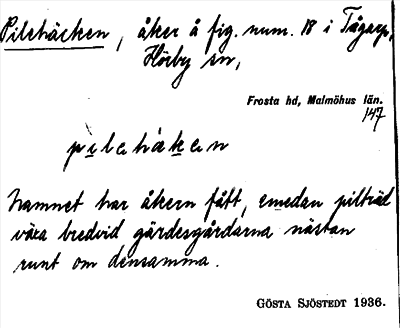 Pilehäcken, åker å fig. num. 18 i Tågarp,
Hörby sn,
Frosta hd, Malmöhus län.
147
Namnet har åkern fått, emedan pilträd
växa bredvid gärdesgårdarna nästan
runt om densamma.
GÖSTA SJÖSTEDT 1936.